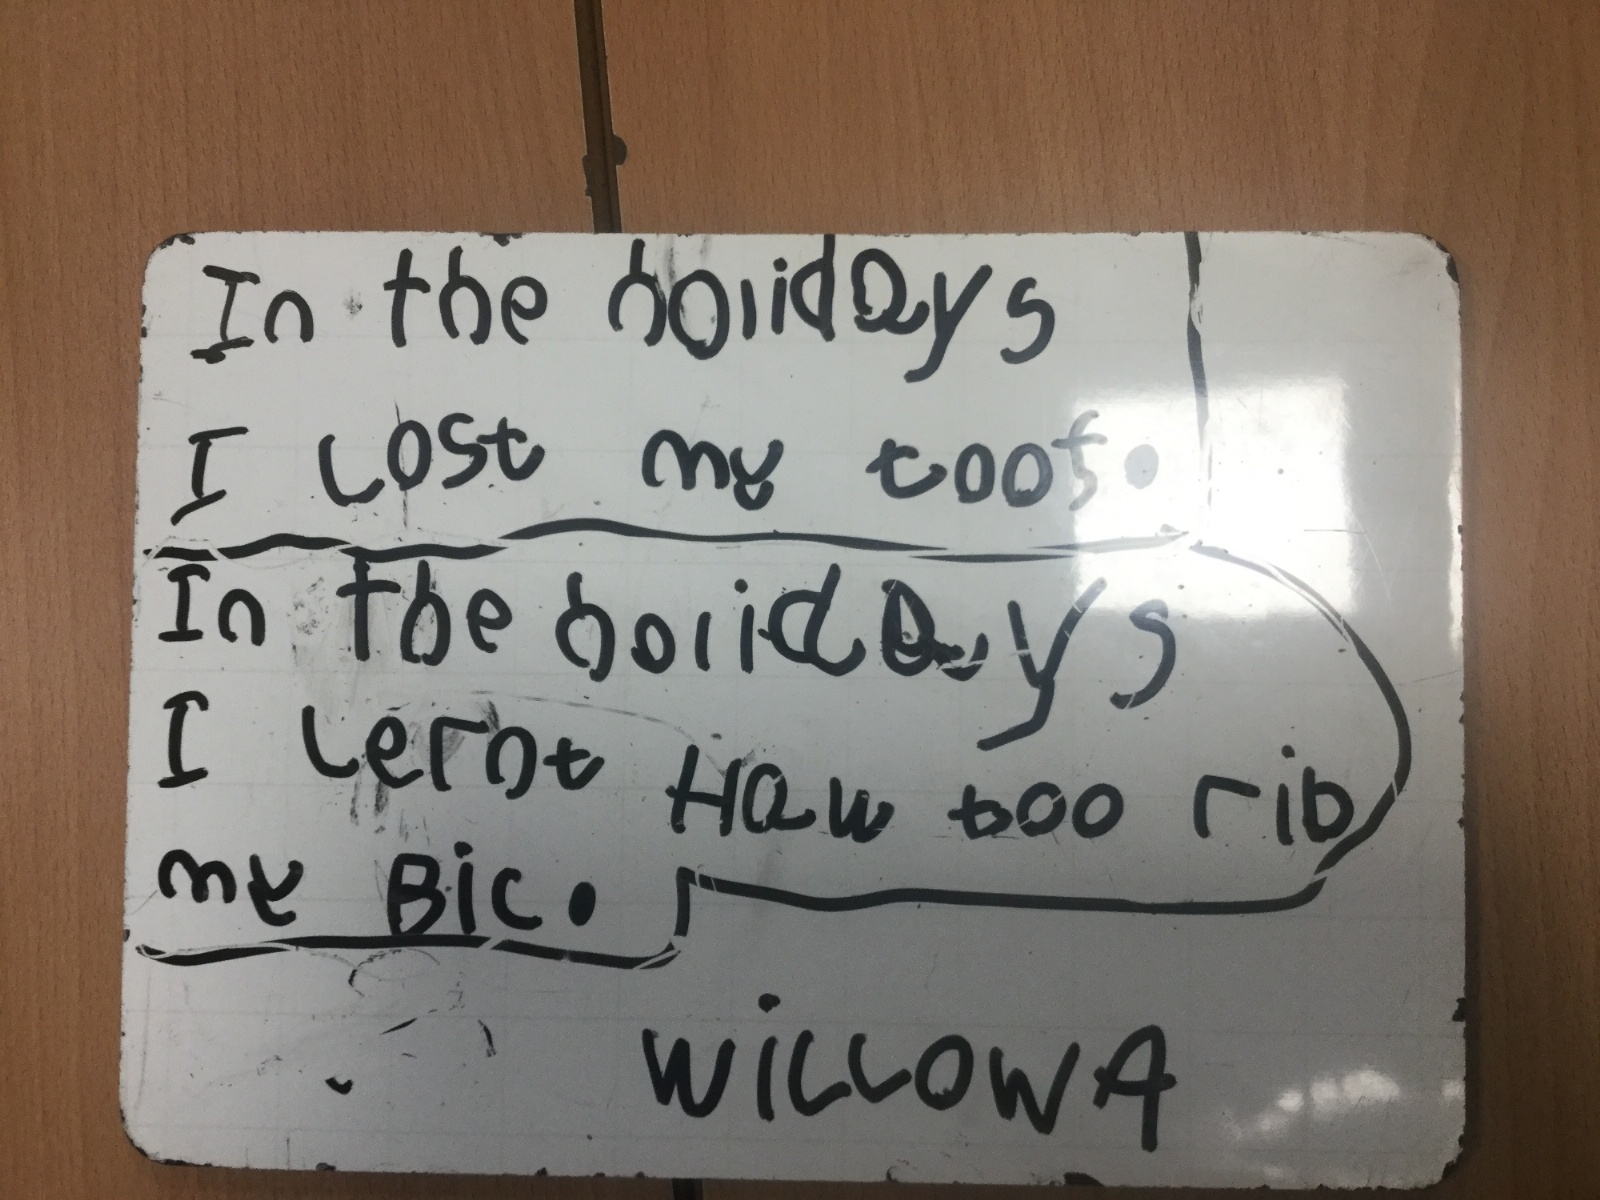 In the holidays
I Lost my toof.
In the holidays
I Lernt Haw too rib
my Bic.
WiLLOW A